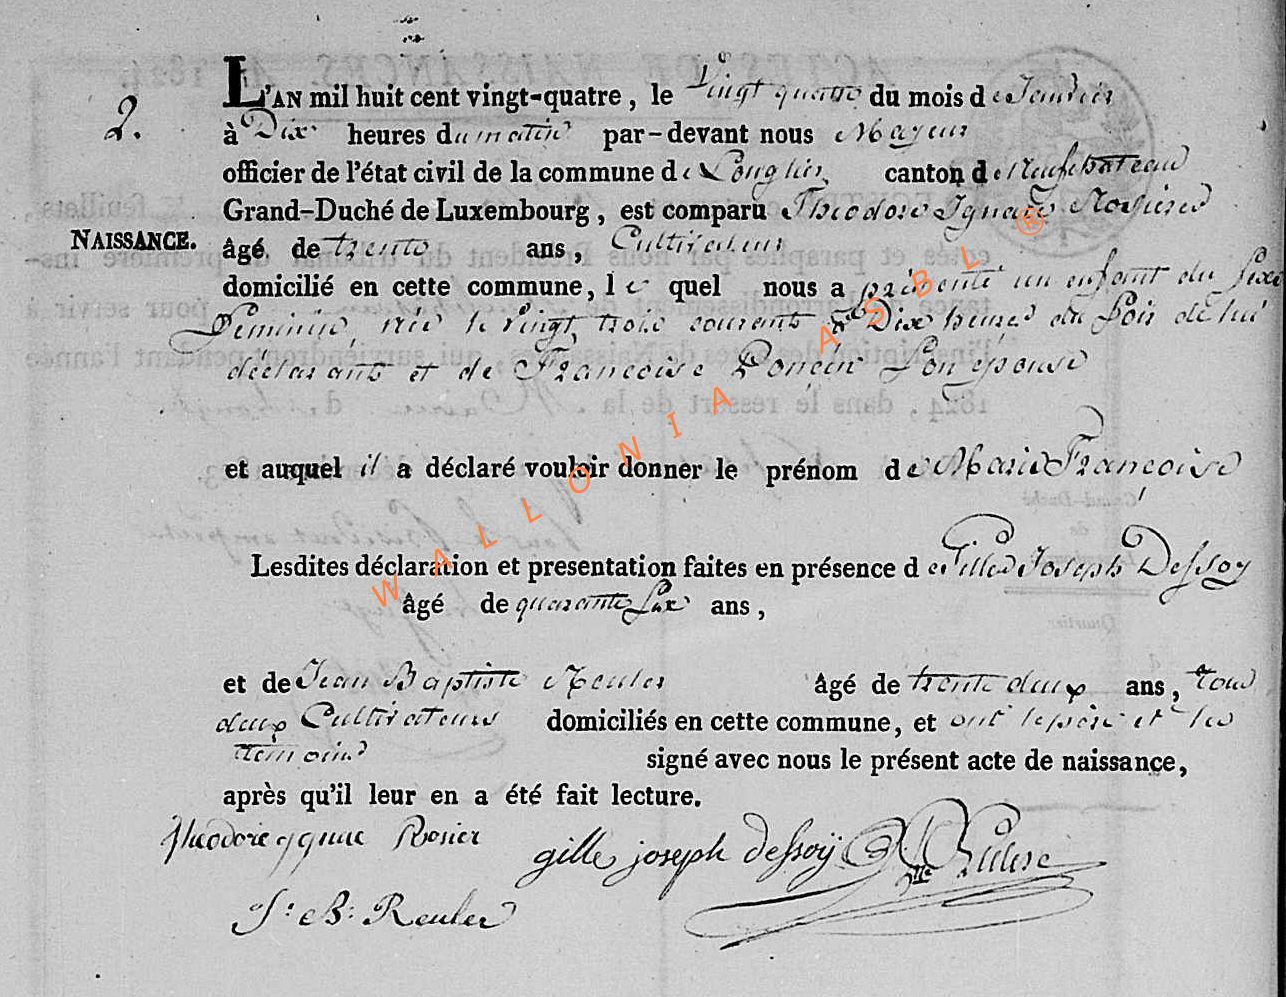 2.
L'AN mil huit cent vingt-quatre, le Vingt quatre du mois de Janvier
à Dix heures du matin par-devant nous Mayeur
officier de l'état civil de la commune de Longlier canton de Neufchateau
Grand-Duché de Luxembourg, est comparu Theodore Ignace Rosiere
NAISSANCE.
âgé de trente ans, Cultivateur
domicilié en cette commune, le quel nous a présenté un enfant du sexe
Feminin, née le vingt trois courant à Dix heures du soir de lui
déclarant et de Françoise Poncin son epouse
et auquel il a déclaré vouloir donner le prénom de Marie Françoise
Lesdites déclaration et presentation faites en présence de Gilles Joseph Dessoy
âgé de quarante six ans,
et de Jean Baptiste Reuler âgé de trente deux ans, tous
deux Cultivateurs domiciliés en cette commune, et ont le père et les
temoins
signé avec nous le présent acte de naissance,
après qu'il leur en a été fait lecture.
theodore ygnace Rosier gille joseph dessoÿ
J: B: Reuler
WALLONIA ASBL ®